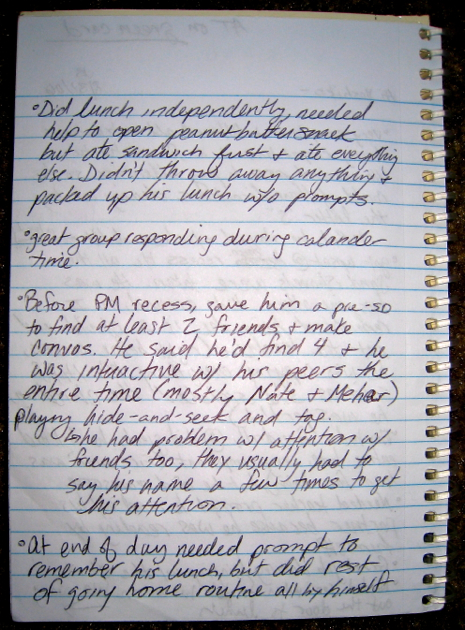 °Did lunch independently, needed
help to open peanutbutter snack
but ate sandwich first + ate everything
else. Didn't throw away anything +
packed up his lunch w/o prompts.
°great group responding during calander
time.
°Before PM recess, gave him a pre-SD
to find at least 2 friends + make
convos. He said he'd find 4 + he
was interactive w/ his peers the
entire time (mostly Nate + Mehar)
playing hide-and-seek and tag.
↳he had problem w/ attention w/
friends too, they usually had to
say his name a few times to get
his attention.
°At end of day needed prompt to
remember his lunch, but did rest
of going home routine all by himself